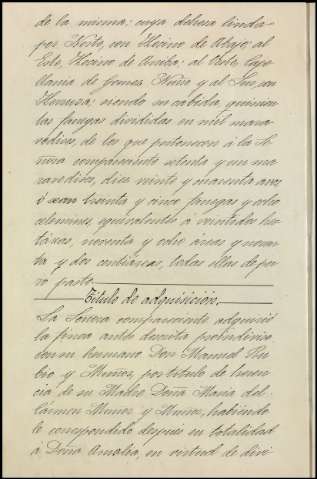 de la misma: cuya dehesa linda
por Norte, con Hocino de Abajo; al
Este, Hocino de Arriba; al Oeste, Cape-
llania de Gomez Nuño y al Sur, con
siendo su cabida, quinien-
tas fanegas divididas en mil mara-
vedises, de los que pertenecen á la Se-
ñora compareciente setenta y un ma-
ravedises, diez veinte y avos,
ó sean treinta y cinco fanegas y ocho
celemines, equivalentes á veintidos hec-
táreas, noventa y ocho áreas y noven-
ta y dos centiáreas, todas ellas de pu-
ro pasto.
Título de adquisición.
La Señora compareciente adquirió
la finca antes descrita proindiviso
con su hermano Don Manuel Ru-
bio y Muñoz, por título de heren-
cia de su Madre Doña Maria del
Cármen Muñoz y Muñoz, habiendo
le correspondido despues su totalidad
á Doña Amalia, en virtud de divi-